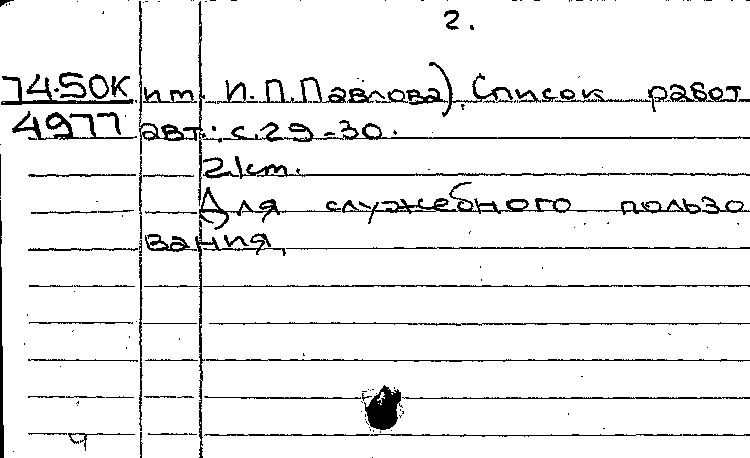 2.
74.50К им. И.П.Павлова). Список работ
4977 авт.: с.29-30.
Для служебного пользо
вания,
ч